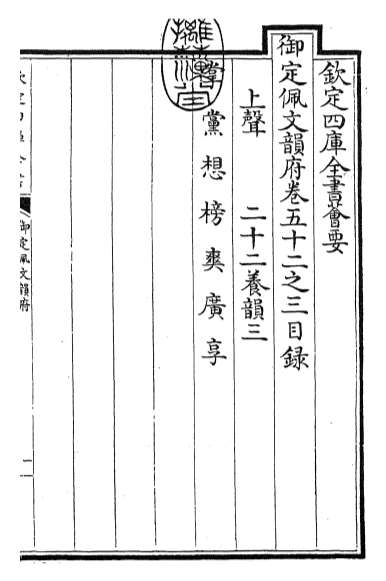 欽定四庫全書薈要
御定佩文韻府卷五十二之三目錄
上聲 二十二養韻三
黨 想 榜 爽 廣 享
御定佩文韻府